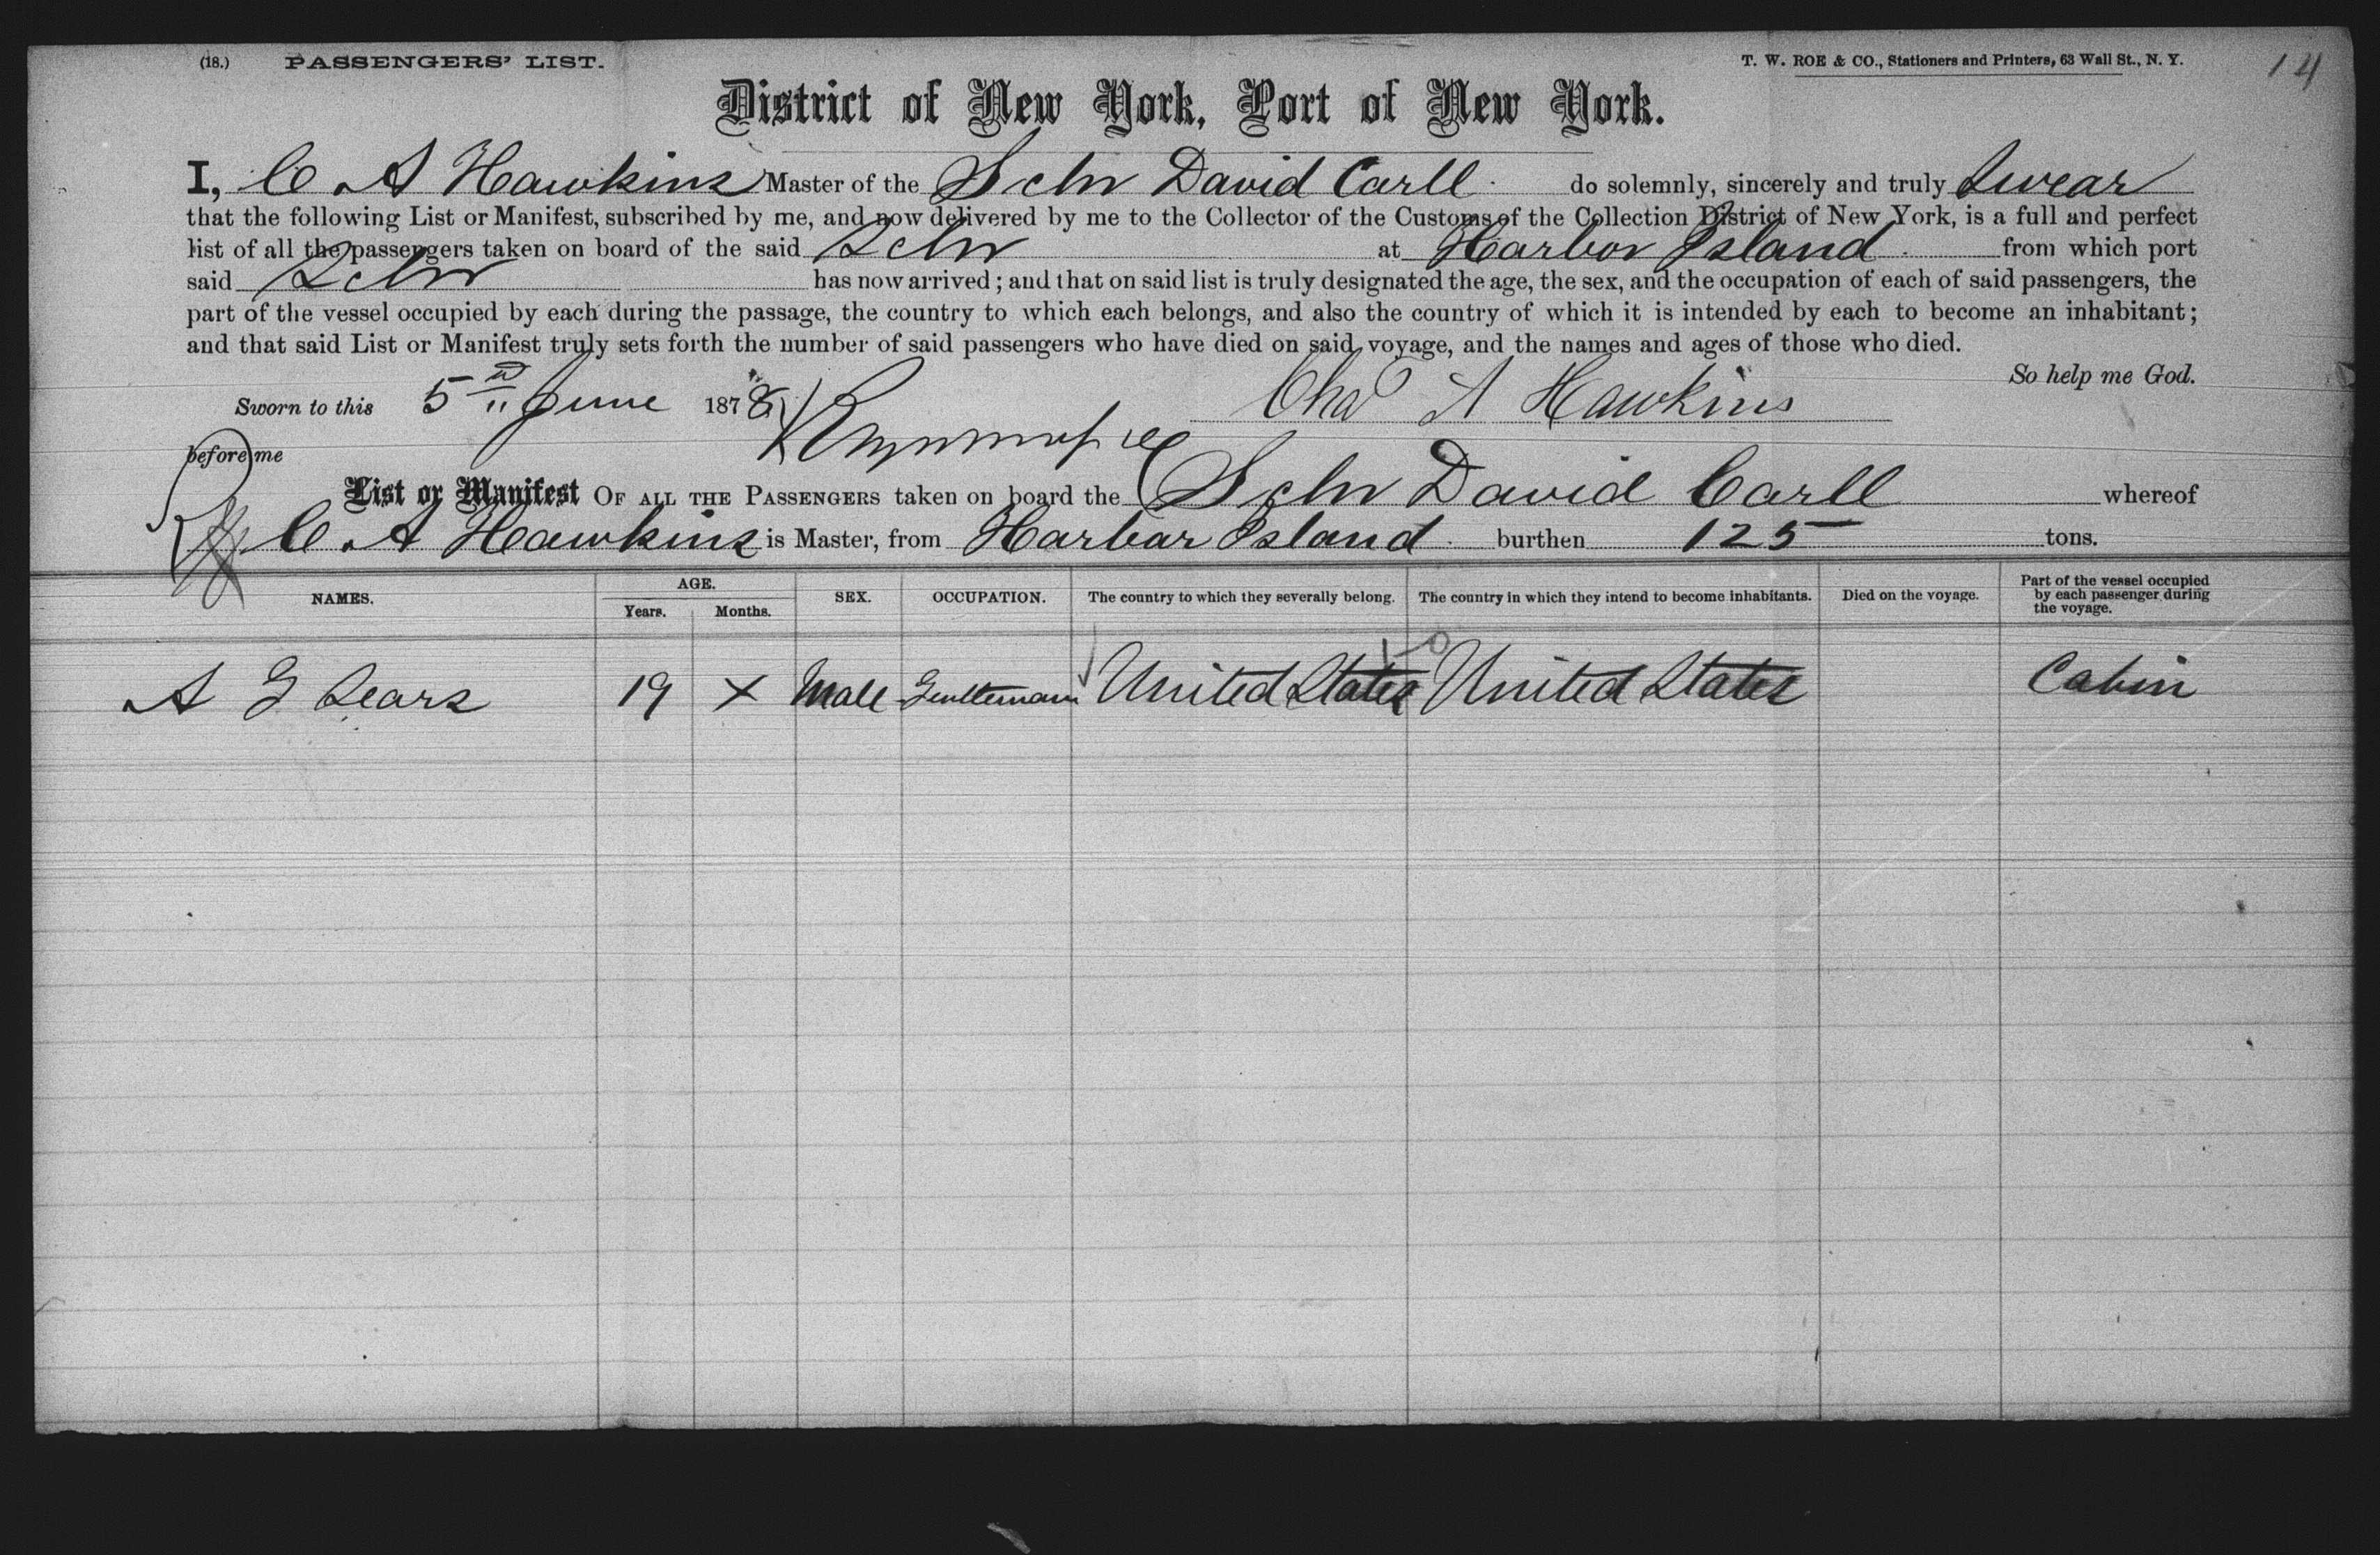 (18.) PASSENGERS' LIST. T. W. ROE & CO., Stationers and Printers, 63 Wall St., N. Y. 14
District of New York, Port of New York.
I, C A Hawkins Master of the Schr David Carll do solemnly, sincerely and truly Swear
that the following List or Manifest, subscribed by me, and now delivered by me to the Collector of the Customs of the Collection District of New York, is a full and perfect
list of all the passengers taken on board of the said Schr at Harbor Island from which port
said Schr has now arrived; and that on said list is truly designated the age, the sex, and the occupation of each of said passengers, the
part of the vessel occupied by each during the passage, the country to which each belongs, and also the country of which it is intended by each to become an inhabitant;
and that said List or Manifest truly sets forth the number of said passengers who have died on said voyage, and the names and ages of those who died.
So help me God.
Sworn to this 5 June 1878 Chas A Hawkins
before me
List or Manifest OF ALL THE PASSENGERS taken on board the Schr David Carll whereof
C A Hawkins is Master, from Harbor Island burthen 125 tons.
NAMES. AGE. Years. Months. SEX. OCCUPATION. The country to which they severally belong. The country in which they intend to become inhabitants. Died on the voyage. Part of the vessel occupied by each passenger during the voyage.
A G Sears 19 X Male Gentleman United States United States Cabin